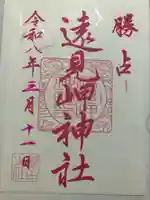 勝占
遠見山神社
令和八年三月十一日